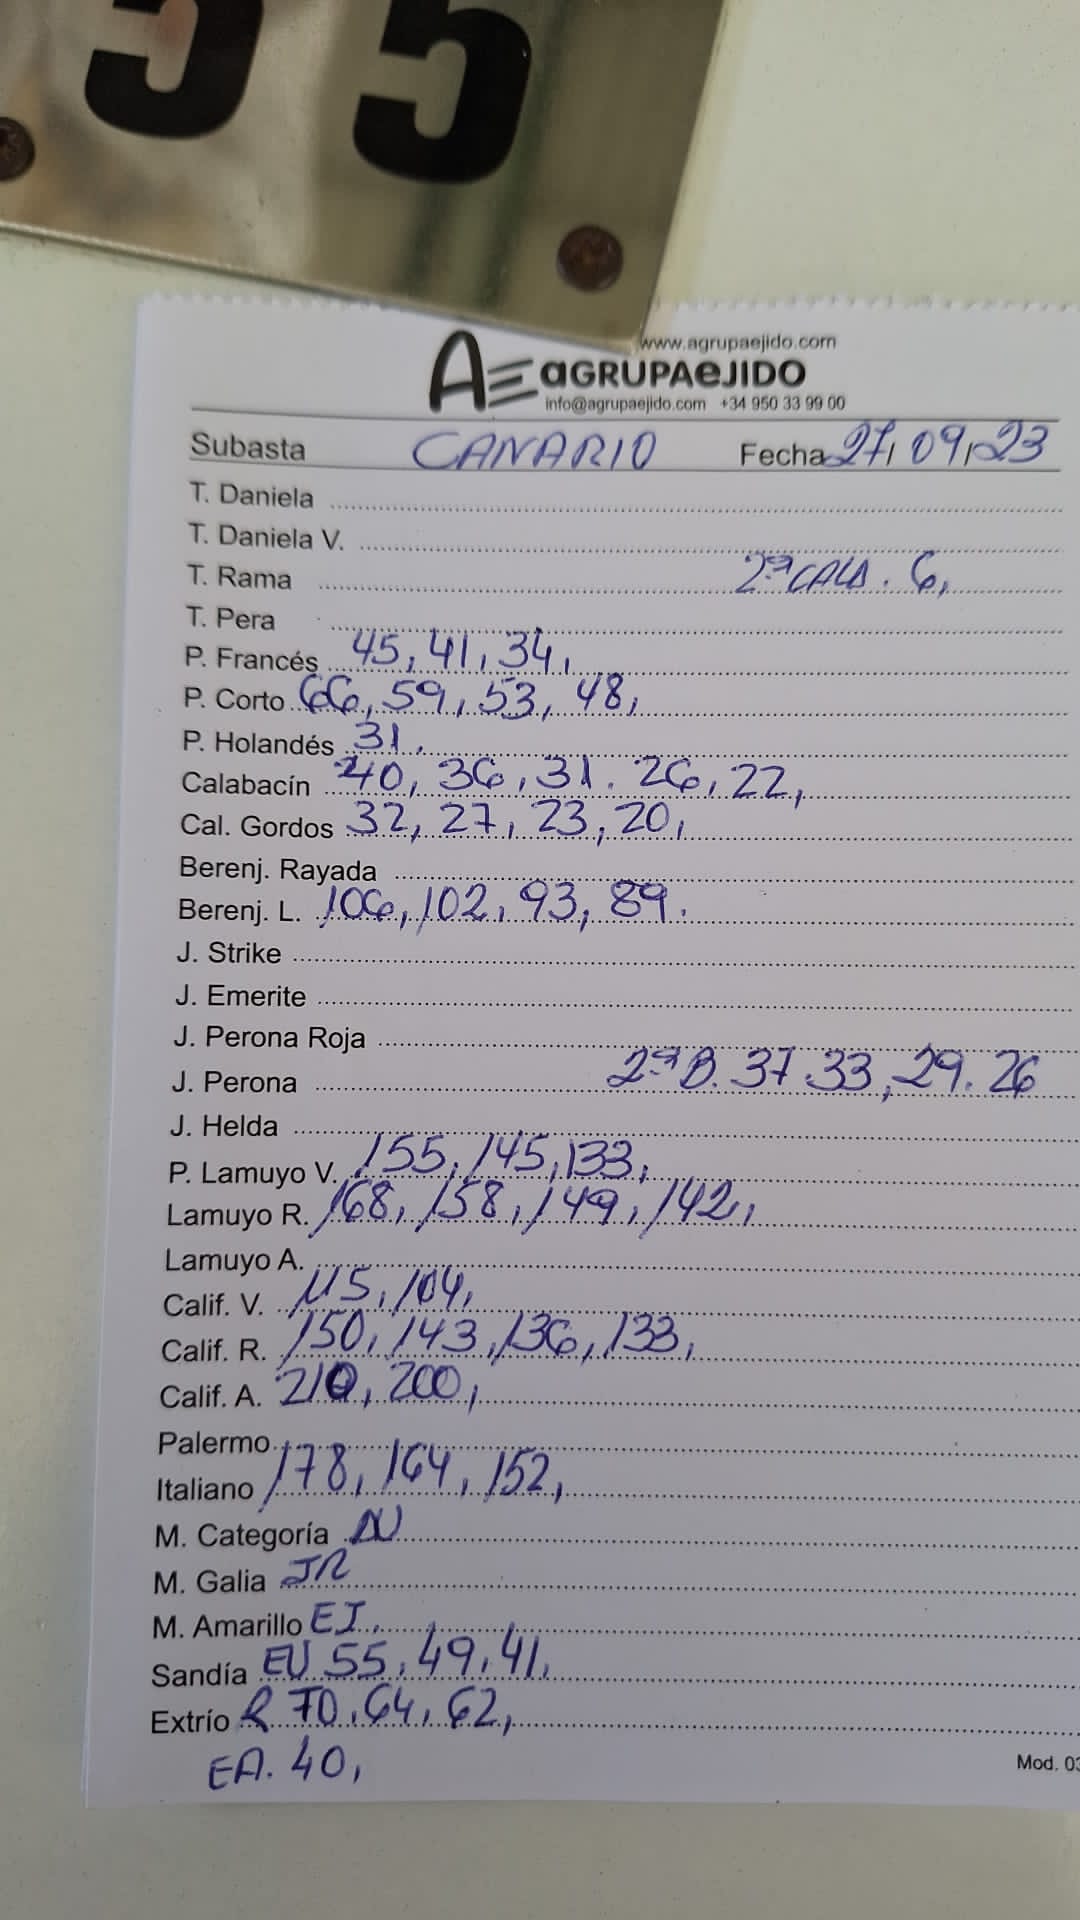 55
www.agrupaejido.com
AE aGRUPAeJIDO
info@agrupaejido.com +34 950 33 99 00
Subasta CANARIO Fecha 27/09/23
T. Daniela
T. Daniela V.
T. Rama 2ª CALA. 6,
T. Pera
P. Francés 45, 41, 34,
P. Corto 66, 59, 53, 48,
P. Holandés 31.
Calabacín 40, 36, 31. 26, 22,
Cal. Gordos 32, 27, 23, 20,
Berenj. Rayada
Berenj. L. 106, 102, 93, 89.
J. Strike
J. Emerite
J. Perona Roja
J. Perona 2ª B. 37. 33, 29. 26
J. Helda
P. Lamuyo V. 155, 145, 133,
Lamuyo R. 168, 158, 149, 142,
Lamuyo A.
Calif. V. 115, 104,
Calif. R. 150, 143, 136, 133,
Calif. A. 210, 200,
Palermo
Italiano 178, 164, 152,
M. Categoría
M. Galia JR
M. Amarillo EI.
Sandía EU 55, 49, 41,
Extrío R 70, 64, 62,
EA. 40,
Mod. 03